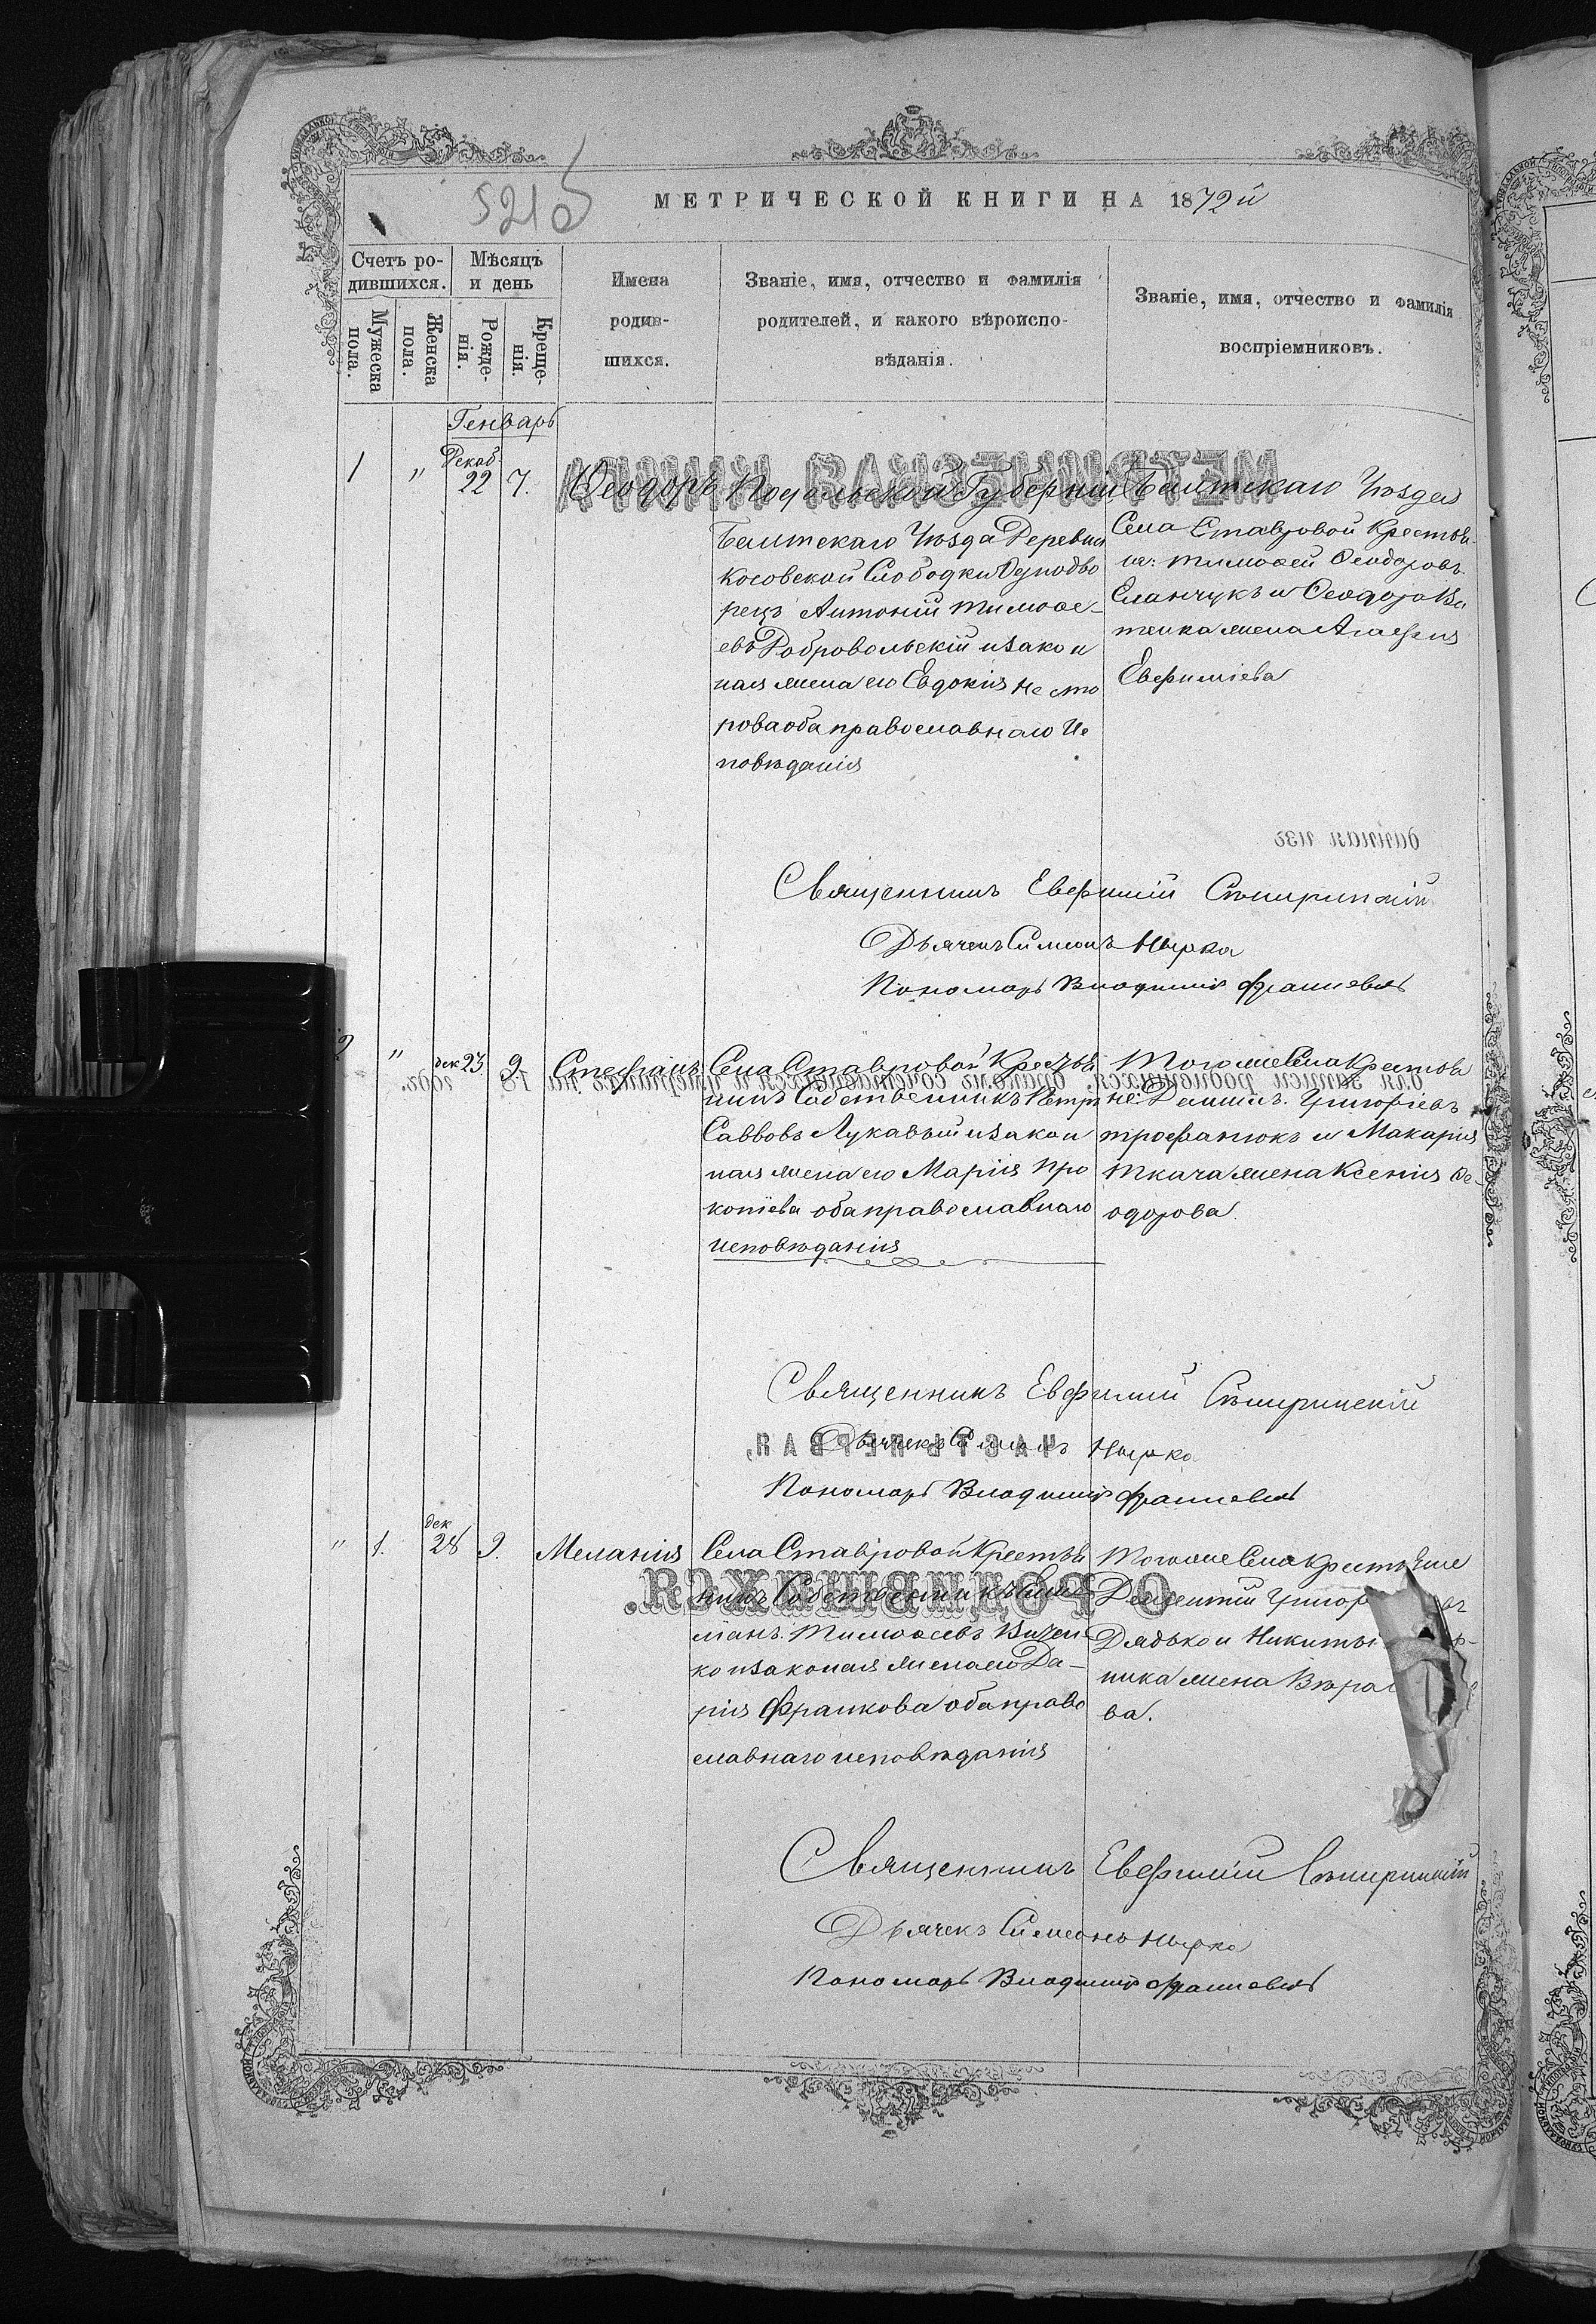 521 об
МЕТРИЧЕСКОЙ КНИГИ НА 1872й
Счетъ ро-
дившихся.
Мѣсяцъ
и день
Мужеска
пола.
Женска
пола.
Рожде-
нія.
Креще-
нія.
Имена
родив-
шихся.
Званіе, имя, отчество и фамилія
родителей, и какого вѣроиспо-
вѣданія.
Званіе, имя, отчество и фамилія
воспріемниковъ.
Генварь
1 " Декаб. 22 7. Ѳеодоръ
Подольской Губерніи
Балтскаго Уѣзда Деревни
Косовской Слободки Однодво
рецъ Антоній Тимоѳе-
евъ Добровольскій и закон
ная жена его Евдокія Несто
рова оба православнаго Ис
повѣданія
Балтскаго Уѣзда
Села Ставровой Крестья-
не: Тимоѳей Ѳеодоровъ
и Ѳеодора
жена Агафія
Евфиміева
Священникъ Евфимій
Дьячекъ Симеонъ Нырка
Пономарь Владимір
2 " дек 23 9. Стефанъ
Села Ставровой Крестья
нинъ Собственникъ Петръ
Саввовъ Лукавый и закон
ная жена его Марія Про
копіева оба православнаго
исповѣданія
Того же Села Крестья
не: Даніилъ Григоріевъ
Трофанюкъ и Макарія
Ткача жена Ксенія Ѳе-
одорова.
Священникъ Евфимій
Дьячекъ Симеонъ Нырка
Пономарь Владимір
" 1. дек 28 9. Меланія
Села Ставровой Крестья
нинъ Собственникъ
Тимоѳеевъ
ко и законая жена его Да-
рія Франкова оба право
славнаго исповѣданія
Того же Села Крестьяне
Дементій
Дядько и Никиты
ника жена Вѣра
ва.
Священникъ Евфимій
Дьячекъ Симеонъ Нырка
Пономарь Владимір
МЕТРИЧЕСКАЯ КНИГА
данная изъ
для записи родившихся, бракомъ сочетавшихся и умершихъ на 18 годъ.
ЧАСТЬ ПЕРВАЯ,
О РОДИВШИХСЯ.